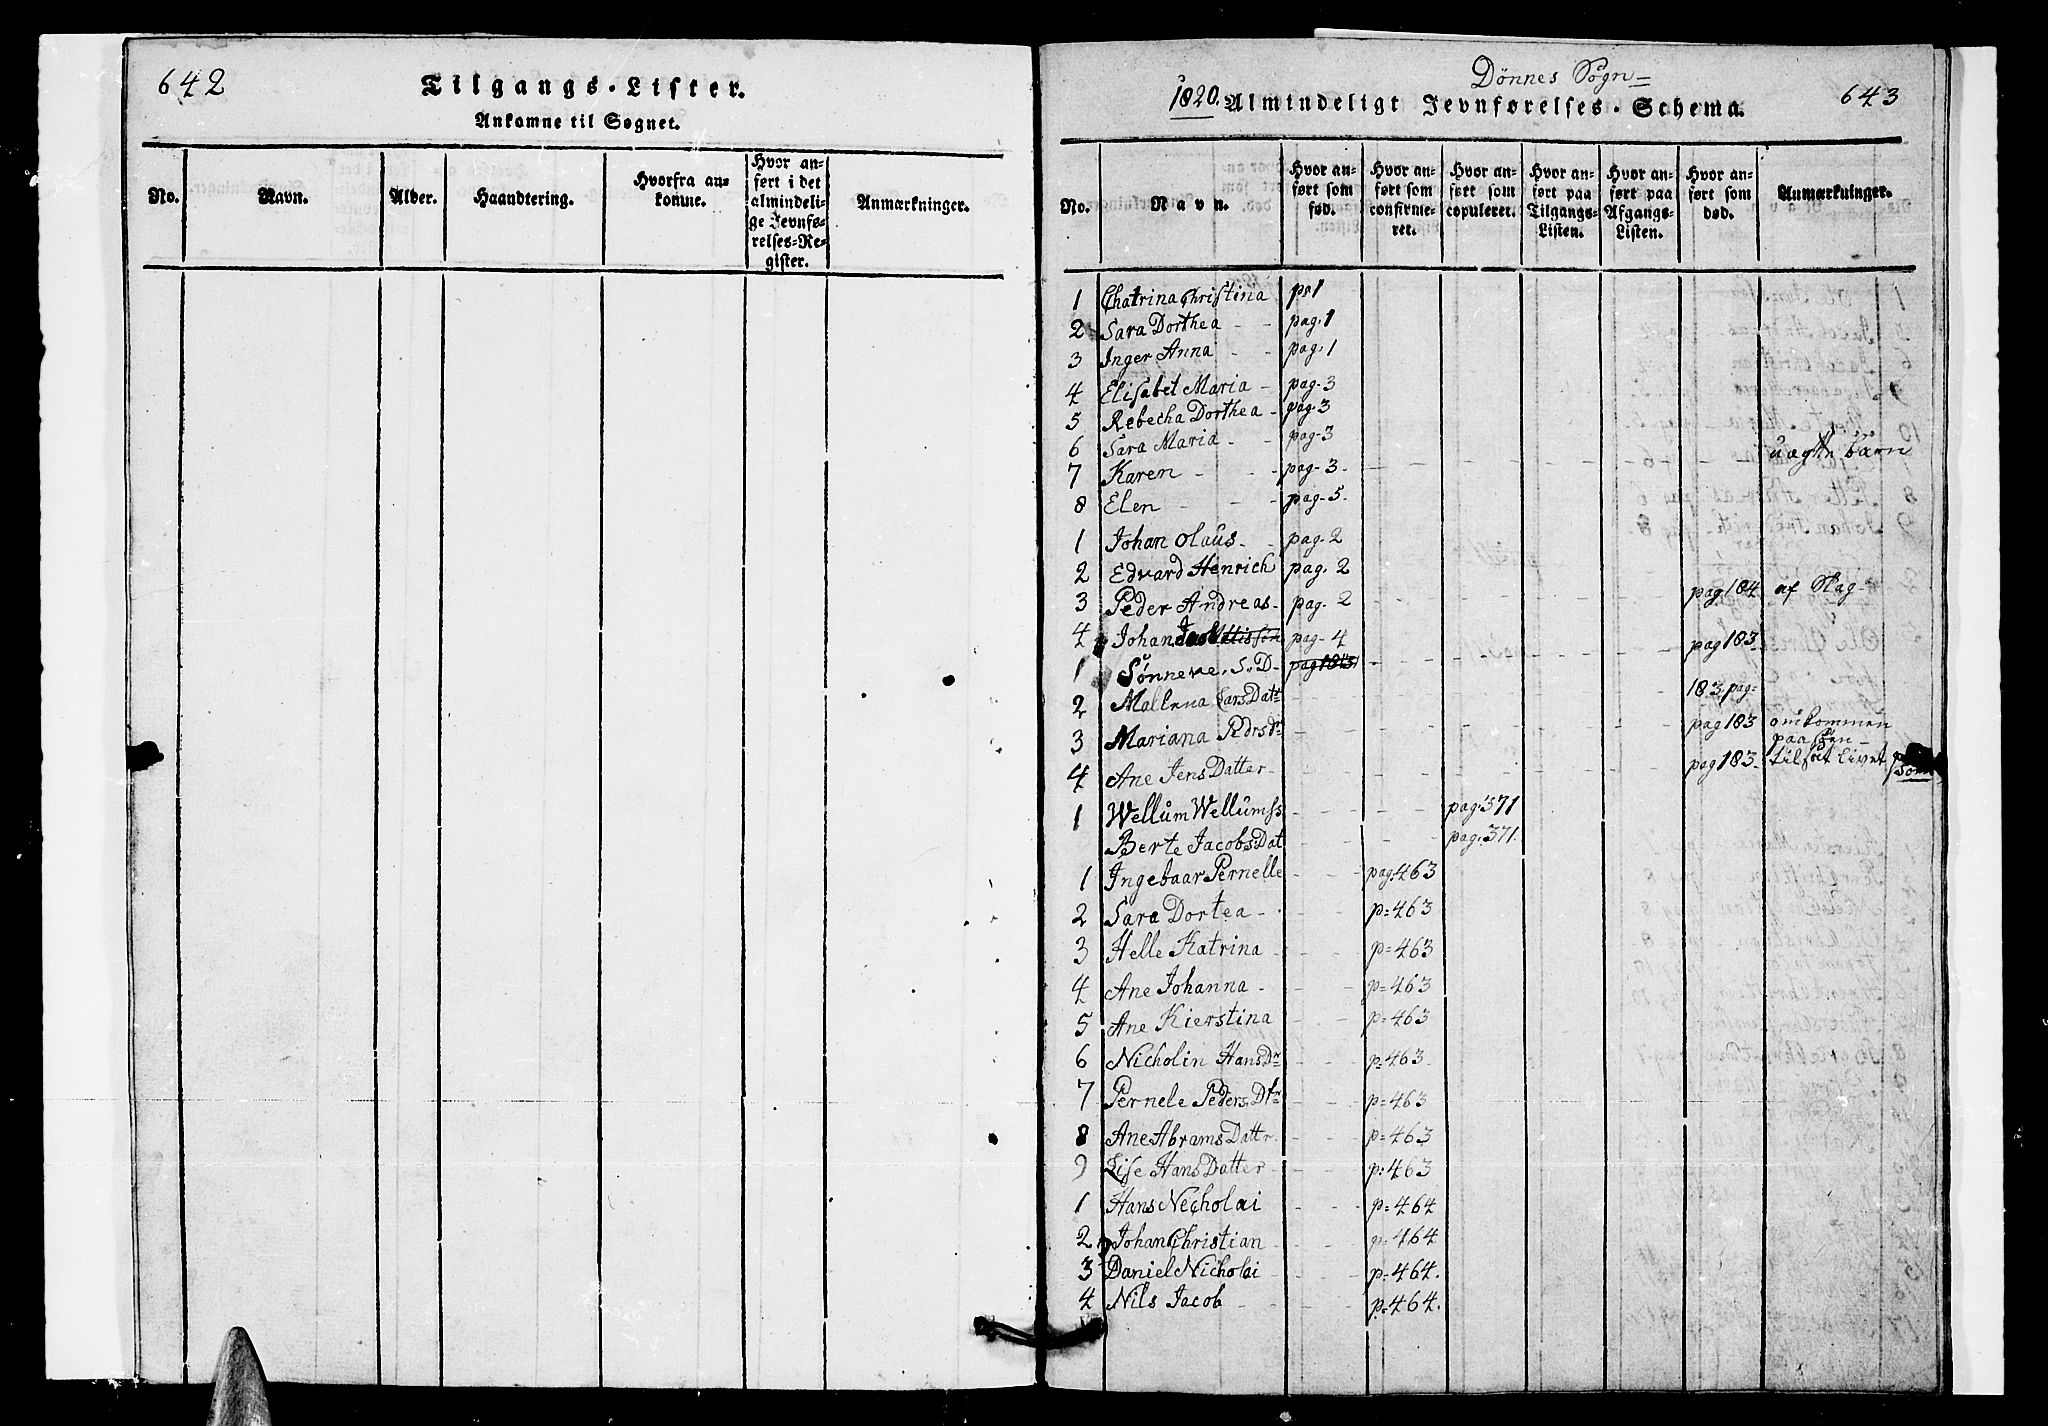 642
Tilgangs-Lister.
Ankomne til Sognet.
No.
Navn.
Alder.
Haandtering.
Hvorfra an-
komne.
Hvor an-
ført i det
almindeli-
ge Jevnfø-
relses-Re-
gister.
Anmærkninger.
Dönnes Sogn
1820. Almindeligt Jevnførelses-Schema. 643
No.
Navn.
Hvor an-
ført som
fød.
Hvor an-
ført som
confirme-
ret.
Hvor an-
ført som
copuleret.
Hvor an-
ført paa
Tilgangs-
Listen.
Hvor an-
ført paa
Afgangs-
Listen.
Hvor an-
ført som
død.
Anmærkninger.
1 Chatrina Christina p:1
2 Sara Dorthea - - pag. 1
3 Inger Anna - - pag. 1
4 Elisabet Maria - pag. 3
5 Rebecha Dorthea - pag. 3
6 Sara Maria - - pag. 3
7 Karen - - pag. 3 - uægte barn
8 Elen - - pag. 5.
1 Johan Olaus - - pag. 2
2 Edvard Henrich pag. 2
3 Peder Andreas - pag. 2 - pag 184 af
4 Johan pag. 4 pag 183
1 Sönneve. S. D - pag 183 -
2 Mallena Lars Datr - 183 pag=
3 Mariana Pdrs dr - pag 183 omkommen
paa
4 Ane Jens Datter - pag 183 - tilsat Livet paa
1 Wellum Wellumss - pag. 371
Berte Jacobs Dat - pag. 371.
1 Ingebaar Pernelle - pag. 463
2 Sara Dortea - p= 463
3 Helle Katrina - p= 463
4 Ane Johanna - p= 463
5 Ane Kierstina - p= 463
6 Nicholin Hans Dr - p= 463
7 Pernele Peders Dtr - p= 463
8 Ane Abrams Dattr - p= 463
9 Lise Hans Datter - p: 463
1 Hans Necholai - p= 464
2 Johan Christian - p= 464
3 Daniel Nicholai - p= 464.
4 Nils Jacob - p. 464.